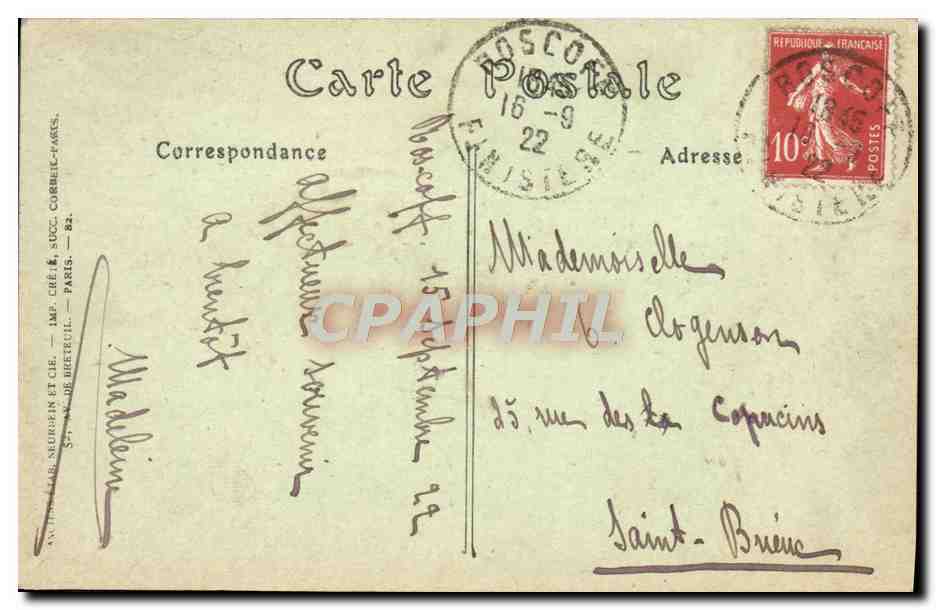 Carte Postale
Correspondance
Adresse
ROSCOFF
18 45
16 - 9
22
FINISTERE
REPUBLIQUE FRANCAISE
10c
POSTES
ROSCOFF
18 45
22
FINISTERE
Roscoff. 15 Septembre 22
affectueux souvenir
a bientôt
Madeleine
Mademoiselle
G Clogenson
25, rue des Capucins
Saint-Brieuc
CPAPHIL
ANCIENS ETAB. NEURDEIN ET CIE. — IMP. CRÉTÉ, SUCC. CORBEIL-PARIS.
52, AV. DE BRETEUIL. — PARIS. — 82.